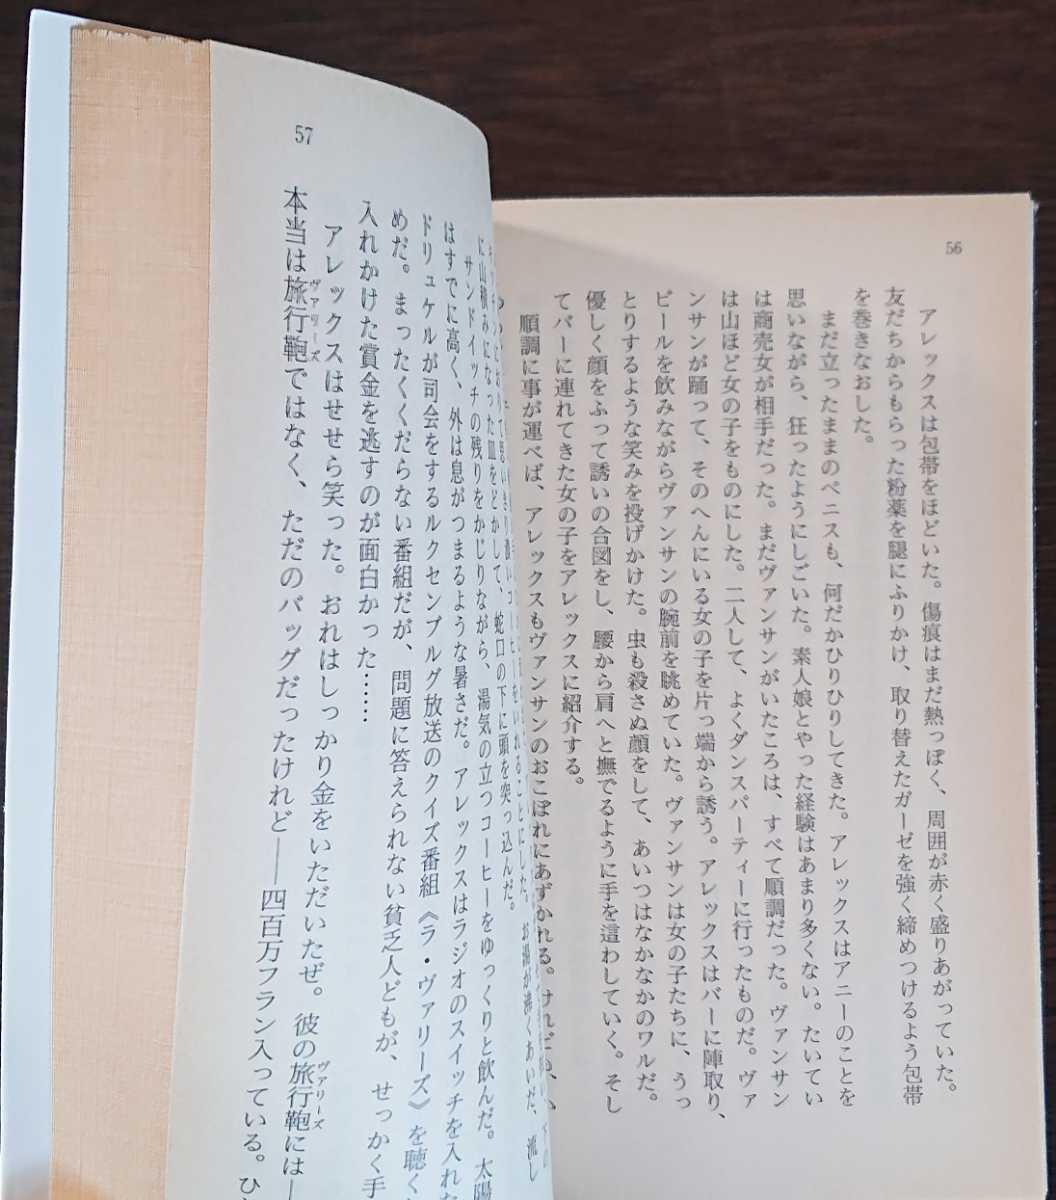 56
アレックスは包帯をほどいた。傷痕はまだ熱っぽく、周囲が赤く盛りあがっていた。
友だちからもらった粉薬を腿にふりかけ、取り替えたガーゼを強く締めつけるよう包帯
を巻きなおした。
まだ立ったままのペニスも、何だかひりひりしてきた。アレックスはアニーのことを
思いながら、狂ったようにしごいた。素人娘とやった経験はあまり多くない。たいてい
は商売女が相手だった。まだヴァンサンがいたころは、すべて順調だった。ヴァンサン
は山ほど女の子をものにした。二人して、よくダンスパーティーに行ったものだ。ヴァ
ンサンが踊って、そのへんにいる女の子を片っ端から誘う。アレックスはバーに陣取り、
ビールを飲みながらヴァンサンの腕前を眺めていた。ヴァンサンは女の子たちに、うっ
とりするような笑みを投げかけた。虫も殺さぬ顔をして、あいつはなかなかのワルだ。
優しく顔をふって誘いの合図をし、腰から肩へと撫でるように手を這わしていく。そし
てバーに連れてきた女の子をアレックスに紹介する。
順調に事が運べば、アレックスもヴァンサンのおこぼれにあずかれる。けれども、
57
お湯が沸くあいだ、流し
に山積みになった皿をどかして、蛇口の下に頭を突っ込んだ。
サンドイッチの残りをかじりながら、湯気の立つコーヒーをゆっくりと飲んだ。太陽
はすでに高く、外は息がつまるような暑さだ。アレックスはラジオのスイッチを入れた
ドリュケルが司会をするルクセンブルグ放送のクイズ番組《ラ・ヴァリーズ》を聴く
めだ。まったくくだらない番組だが、問題に答えられない貧乏人どもが、せっかく手
入れかけた賞金を逃すのが面白かった……
アレックスはせせら笑った。おれはしっかり金をいただいたぜ。彼の旅行鞄には―
ヴァリーズ
本当は旅行鞄ではなく、ただのバッグだったけれど――四百万フラン入っている。ひ
ヴァリーズ